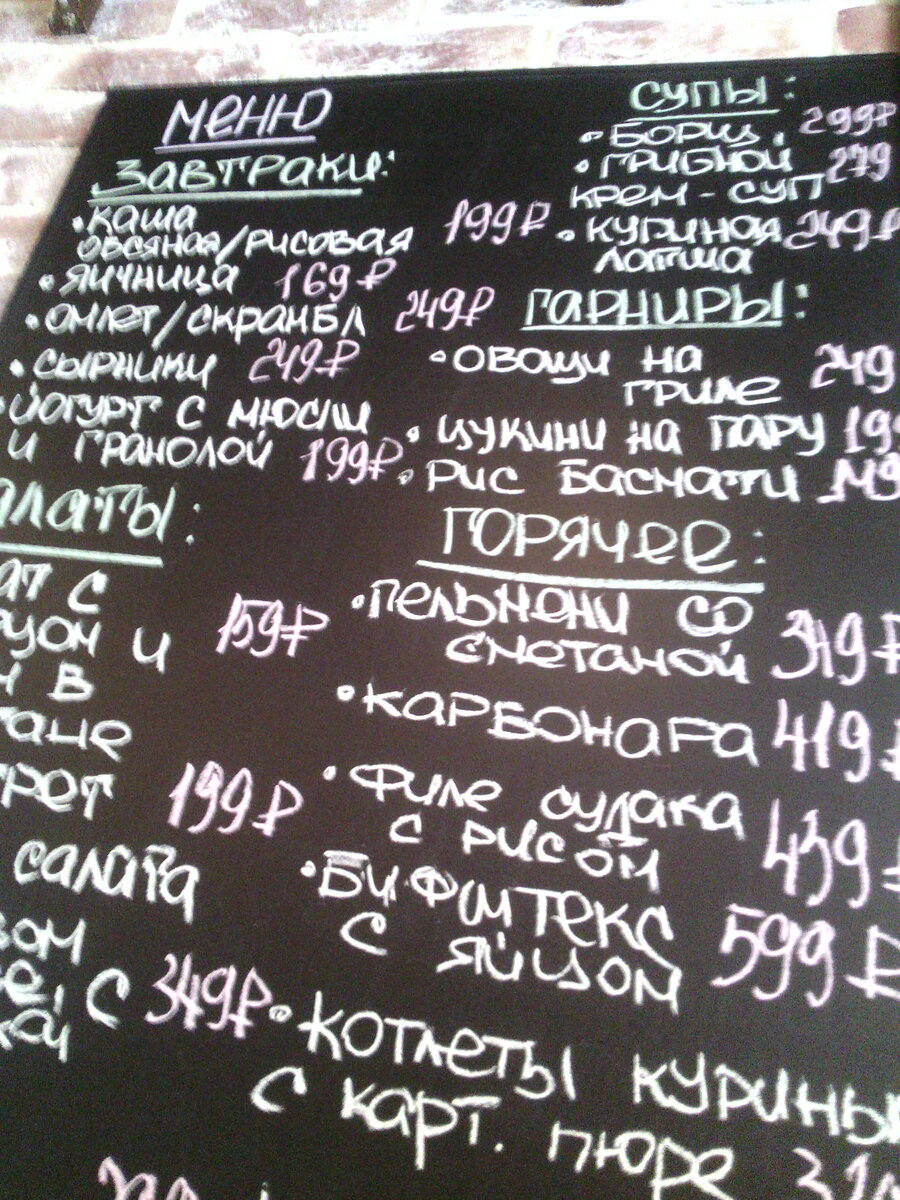 Меню
Завтраки:
• Каша
овсяная/рисовая 199₽
• Яичница 169₽
• Омлет/скрамбл 249₽
• Сырники 249₽
Йогурт с мюсли
и гранолой 199₽
алаты:
ат с
и 159₽
в
тане
199₽
салата
с 349₽
Супы:
• Борщ 299₽
• Грибной 279
крем-суп
• Куриная 249₽
лапша
Гарниры:
• Овощи на 249
гриле
• Цукини на пару 199
• Рис басмати 149
Горячее:
• Пельмени со
сметаной 349₽
• Карбонара 419₽
• Филе судака
с рисом 439₽
• Бифштекс
с яйцом 599₽
• Котлеты курины
с карт. пюре